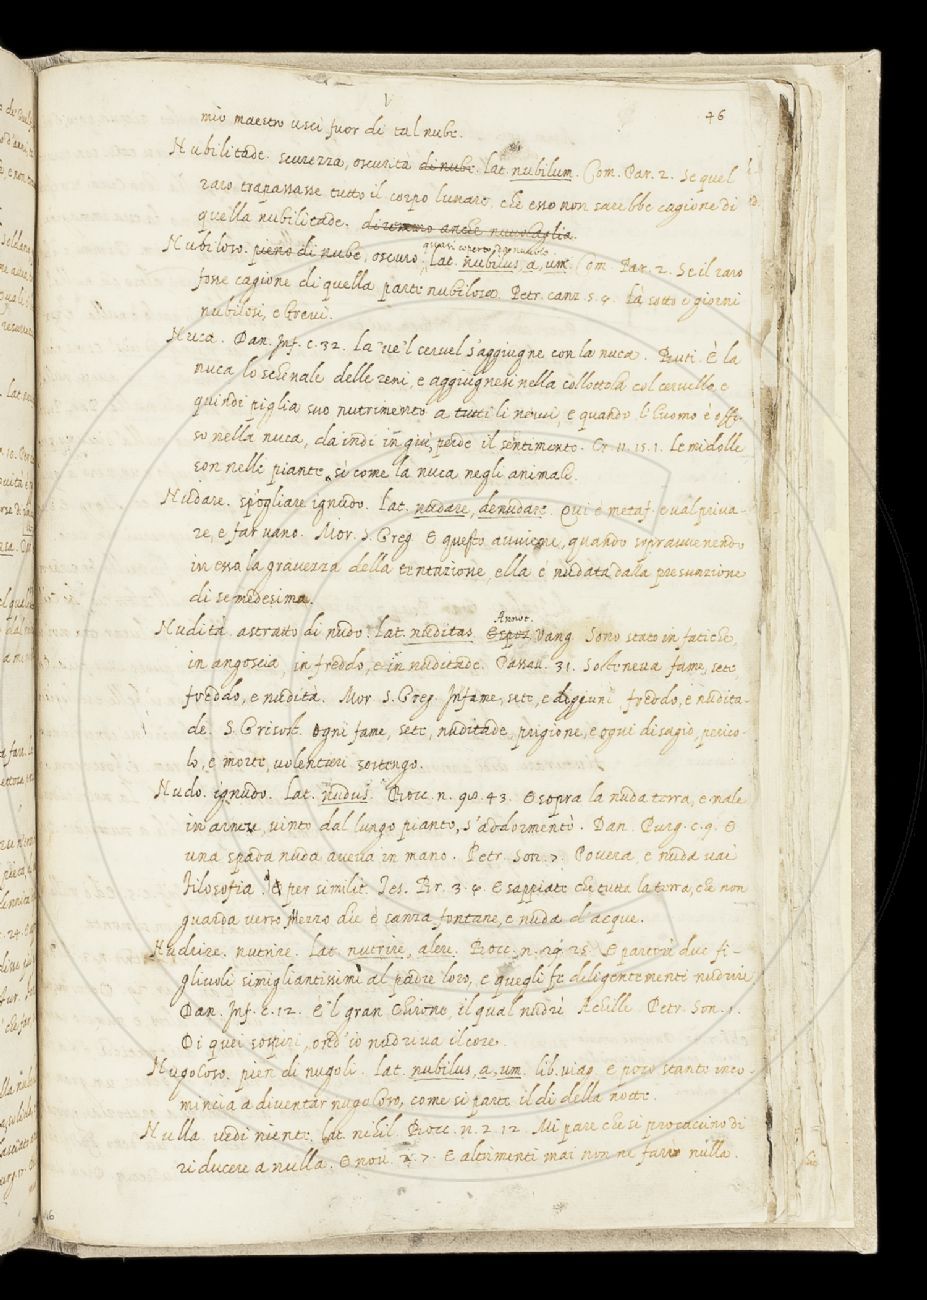 46
mio maestro usci fuor di tal nube.
Nubilitade. scurezza, oscurità di nube. lat. nubilum. Com. Par. 2. Se quel
raro trapassasse tutto il corpo lunare, che esso non sarebbe cagione di
quella nubilitade. diremmo anche nuvolaglia.
Nubiloso. pieno di nube, oscuro. quasi coperto di nuvolo. lat. nubilus, a, um. Com. Par. 2. Se il raro
fosse cagione di quella parte nubilosa. Petr. canz. 5. 4. Là sotto i giorni
nubilosi, e brevi.
Nuca. Dan. Inf. c. 32. la 've 'l cervel s'aggiugne con la nuca. Buti. È la
nuca lo schenale delle reni, e aggiugnesi nella collottola col cervello, e
quindi piglia suo nutrimento a tutti li nervi, e quando l'huomo è offe-
so nella nuca, da indi in giù, perde il sentimento. Cr. 11. 15. 1. Le midolle
son nelle piante, sì come la nuca negli animali.
Nudare. spogliare ignudo. lat. nudare, denudare. Qui è metaf. e val priva-
re, e far vano. Mor. S. Greg. E questo avviene, quando sopravvenendo
in essa la gravezza della tentazione, ella è nudata dalla presunzione
di se medesima.
Nudità. astratto di nudo. lat. nuditas. Espos. Annot. Vang. Sono stato in fatiche,
in angoscia, in freddo, e in nuditade. Passav. 31. Sosteneva fame, sete,
freddo, e nudità. Mor. S. Greg. In fame, sete, e digiuni freddo, e nudita-
de. S. Grisost. Ogni fame, sete, nuditade, prigione, e ogni disagio, perico-
lo, e morte, volentieri sostengo.
Nudo. ignudo. lat. nudus. Bocc. n. 98. 43. E sopra la nuda terra, e male
in arnese, vinto dal lungo pianto, s'addormentò. Dan. Purg. c. 9. E
una spada nuda aveva in mano. Petr. Son. 7. Povera, e nuda vai
filosofia. E per similit. Tes. Br. 3. 4. E sappiate che tutta la terra, che non
guarda verso Mezzo die è sanza fontane, e nuda d'acque.
Nudrire. nutrire. lat. nutrire, alere. Bocc. n. 29. 25. E partorì due fi-
gliuoli simigliantissimi al padre loro, e quegli fe diligentemente nudrire
Dan. Inf. c. 12. E 'l gran Chirone, il qual nudrì Achille Petr. Son. 1.
Di quei sospiri, ond' io nudriva il core.
Nugoloso. pien di nugoli. lat. nubilus, a, um. lib. viag. e poco stante inco-
mincia a diventar nugoloso, come si parte il dì della notte.
Nulla. vedi niente. lat. nihil. Bocc. n. 2. 12. Mi pare che si procaccino di
riducere a nulla. E nov. 2. 7. E altrimenti mai non ne farò nulla.